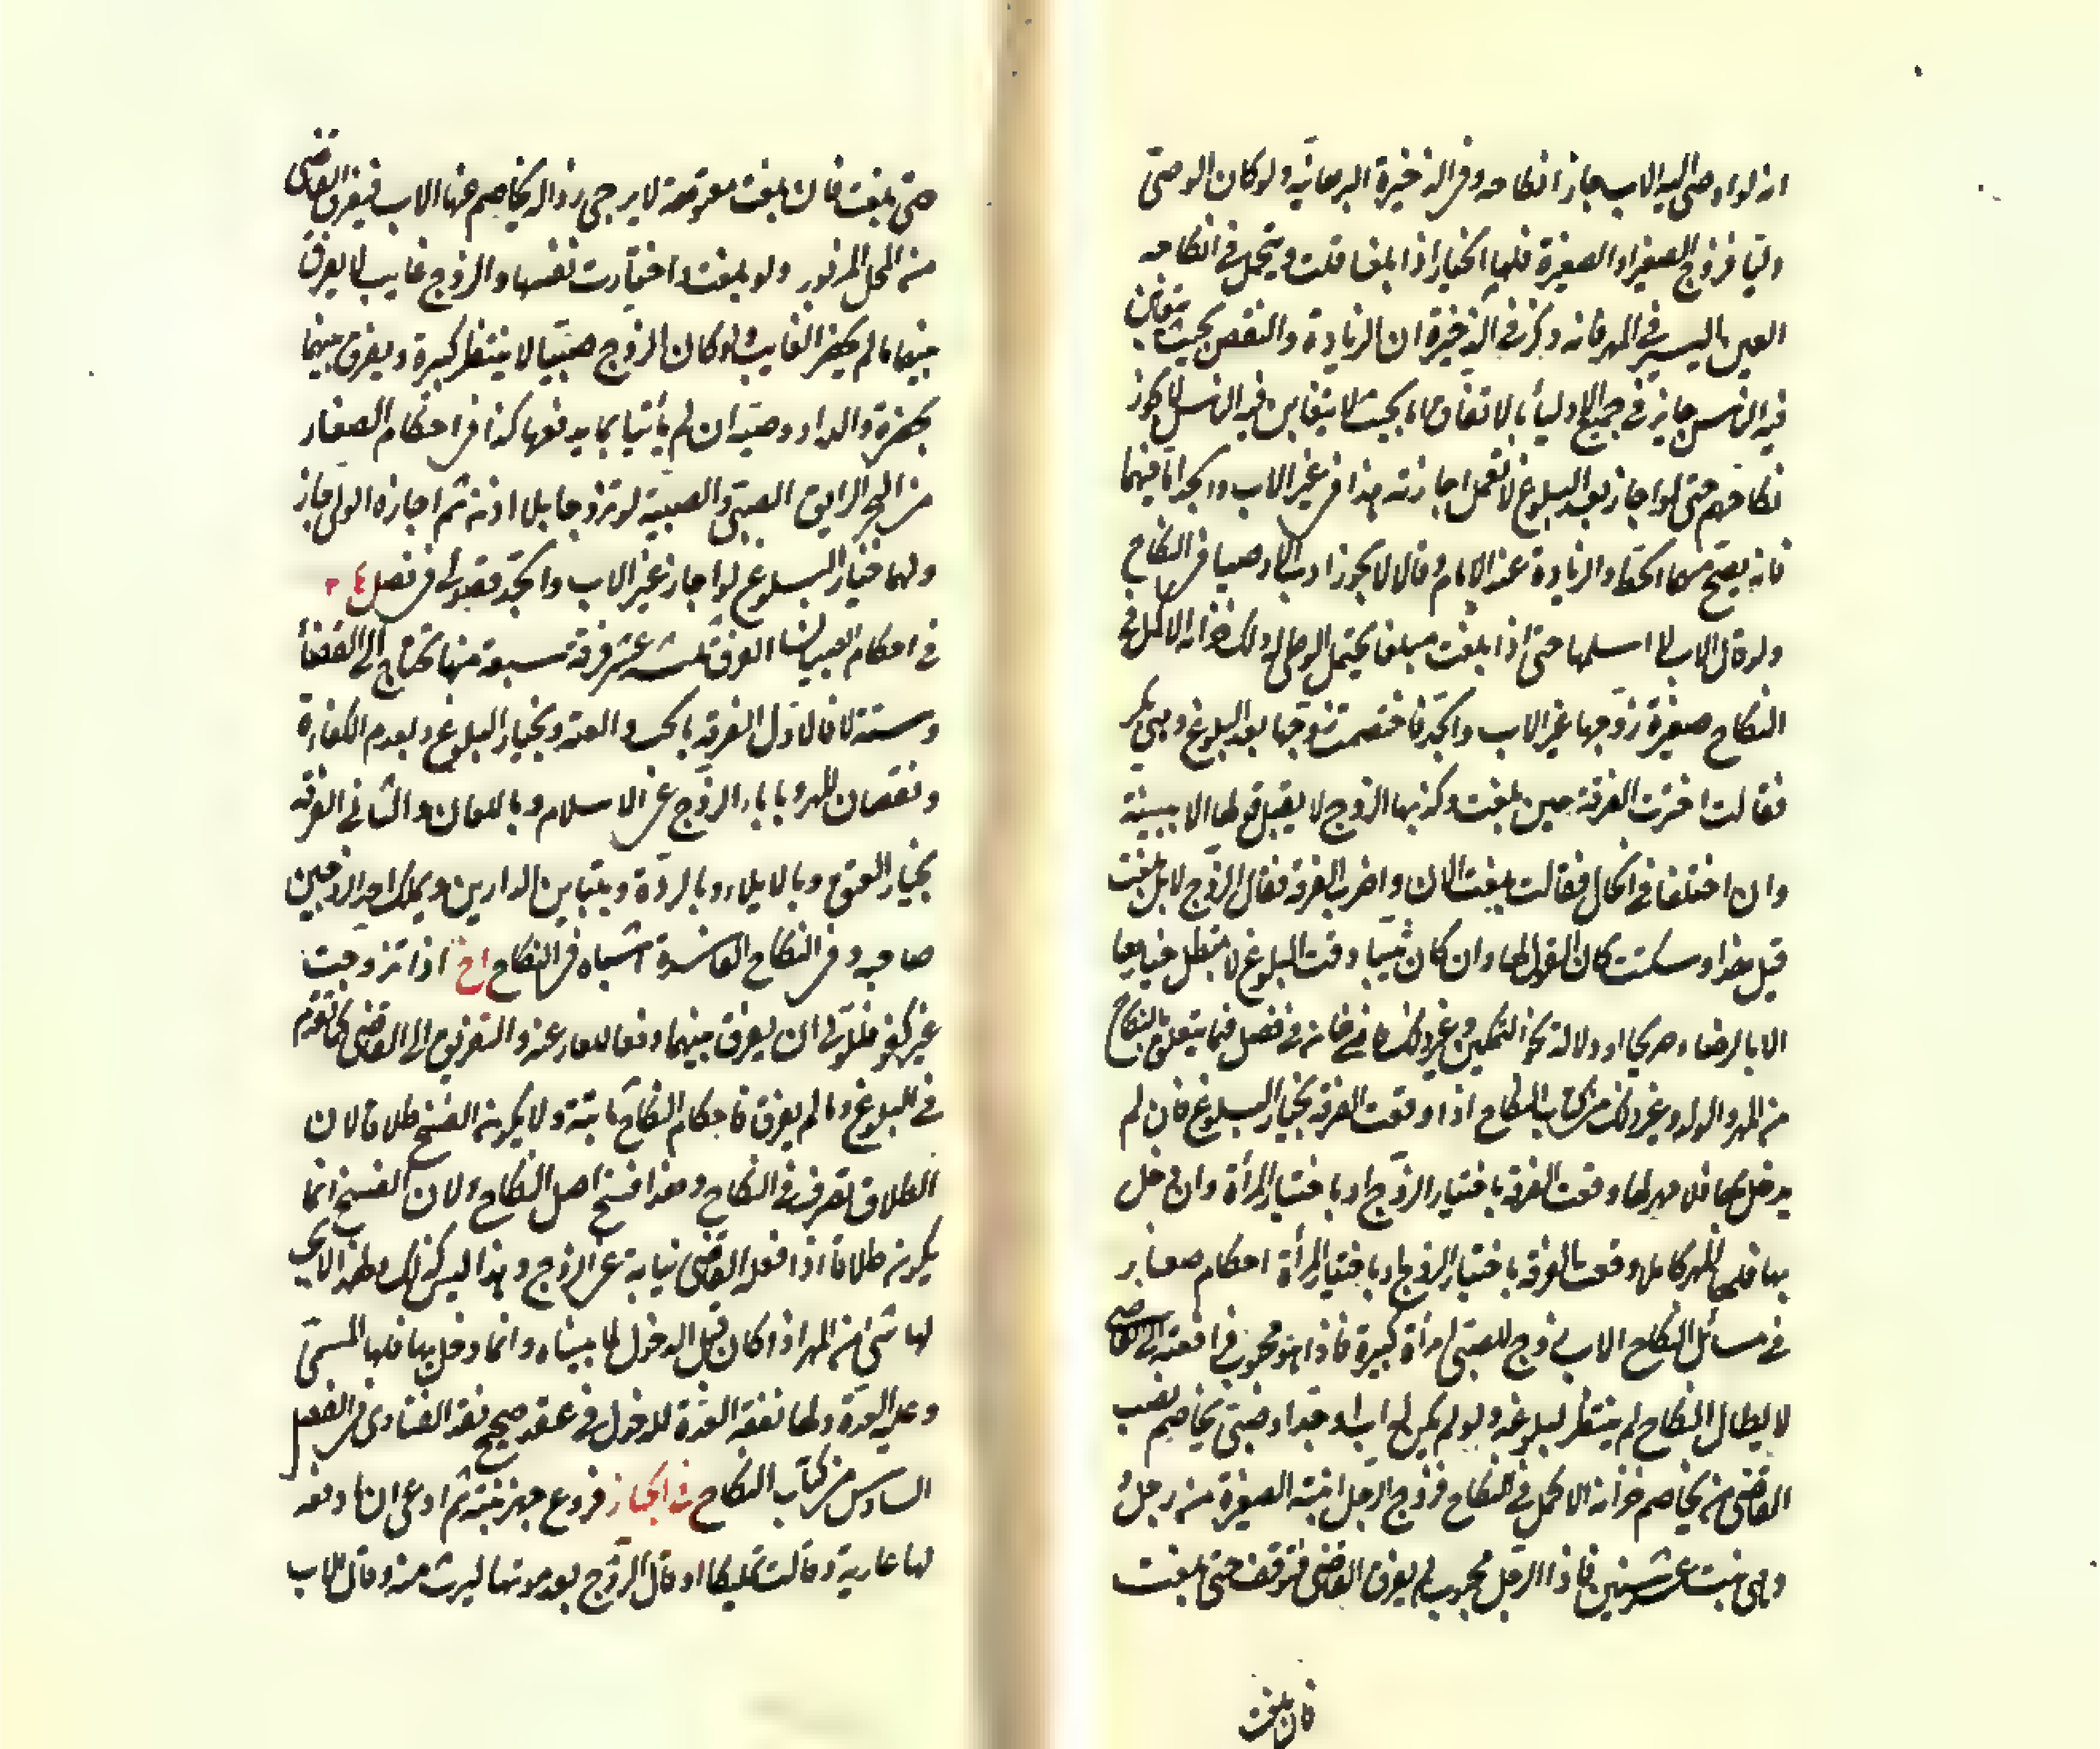 انه لو اوصى اليه الاب جاز انكاحه وفى الذخيرة البرهانية ولو كان الوصى
وليا فزوج الصغير او الصغيرة فلهما الخيار اذا بلغا قلت ويتحمل فى انكاحه
الغبن باليسير فى المهر فانه ذكر فى الذخيرة ان الزيادة والنقص بحيث يتغابن
فيه الناس جايز فى جميع الاوليأ بالاتفاق اما بحيث لا يتغابن فيه الناس لا يجوز
نكاحهم حتى لو اجاز بعد البلوغ لا تعمل اجازته هذا فى غير الاب والجد اما فيهما
فانه يصح الحط والزيادة عند الامام وقالا لا يجوز ادب الاوصيا فى النكاح
ولو قال الاب لا اسلمها حتى اذا بلغت مبلغا يحتمل الوطى له ذلك خزانة الاكمل فى
النكاح صغيرة زوجها غير الاب والجد فاختصمت زوجها بعد البلوغ وهى بكر
فقالت اخترت الفرقة حين بلغت وكذبها الزوج لا يقبل قولها الا ببينة
وان اختلفا فى الحال فقالت بلغت الان واخترت الفرقة فقال الزوج لا بل بلغت
قبل هذا وسكتت كان القول لها وان كان ثيبا وقت البلوغ لا يبطل خيارها
الا بالرضاء صريحا او دلالة نحو التمكين وغير ذلك فى خانيه فى فصل فيما يتعلق بالنكاح
من المهر والولد وغير ذلك من كتاب النكاح اذا وقعت الفرقة بخيار البلوغ فان لم
يدخل بها فلا مهر لها وقعت الفرقة باختيار الزوج او باختيار المرأة وان دخل
بها فلها المهر كاملا وقعت الفرقة باختيار الزوج او باختيار المرأة احكام صغاير
فى مسائل النكاح الاب زوج للصبى امرأة كبيرة فاذا هو مجبوب فرافعته الى القاضى
لا بطال النكاح لم ينتظر لبلوغه ولو لم يكن له اب او جد او وصى يخاصم نصب
القاضى من يخاصم خزانة الاكمل فى النكاح فزوج الرجل ابنته الصغيرة من رجل
وهى بنت عشر سنين فاذا الرجل مجبوب لم يفرق القاضى فتوقف حتى بلغت
فان بلغت
حتى بلغت فان بلغت معتوهة لا يرجى زواله يخاصم عنها الاب فيفرق القاضى
من المحل المزبور ولو بلغت واختارت نفسها والزوج غايب لا يفرق
بينهما ما لم يحضر الغايب ولو كان الزوج صبيا لا ينتظر كبره ويفرق بينهما
بحضرة والد او وصيه ان لم يأتيا بما يدفعها كذا فى احكام الصغار
من البحر الرايق الصبى والصبية لو تزوجا بلا اذنه ثم اجازه الولى جاز
ولهما خيار البلوغ لو اجاز غير الاب والجد فصولى فى فصل
فى احكام الصبيان الفرق ثلث عشر فرقة سبعة منها تحتاج الى القضأ
وستة لا فالاول الفرقة بالجب والعنة وبخيار البلوغ وبعدم الكفاءة
ونقصان المهر وباباء الزوج عن الاسلام وباللعان والثانى الفرقة
بخيار العتق وبالايلاء وبالردة وبتباين الدارين وبملك احد الزوجين
صاحبه وفى النكاح الفاسدة اشباه فى النكاح اخ اذا تزوجت
غير كفو فللولى ان يفرق بينهما دفعا للعار عنه والتفريق الى القاضى كما تقدم
فى البلوغ وما لم يفرق فاحكام النكاح ثابتة ولا يكون الفسخ طلاقا لان
الطلاق تصرف فى النكاح وهذا فسخ اصل النكاح ولان الفسخ انما
يكون طلاقا اذا فعله القاضى نيابة عن الزوج وهذا ليس كذلك ولهذا لا يجب
لها شئ من المهر اذا كان قبل الدخول لما بيناه وانما دخل بها فلها المسمى
وعليه العدة ولها نفقة العدة للدخول فى عقد صحيح نقد الفتاوى فى الفصل
السادس من كتاب النكاح الجهاز فروع جهز بنته ثم ادعى ان ما دفعه
لها عارية وقالت تمليكا او قال الزوج بعد موتها ليرث منه وقال الاب